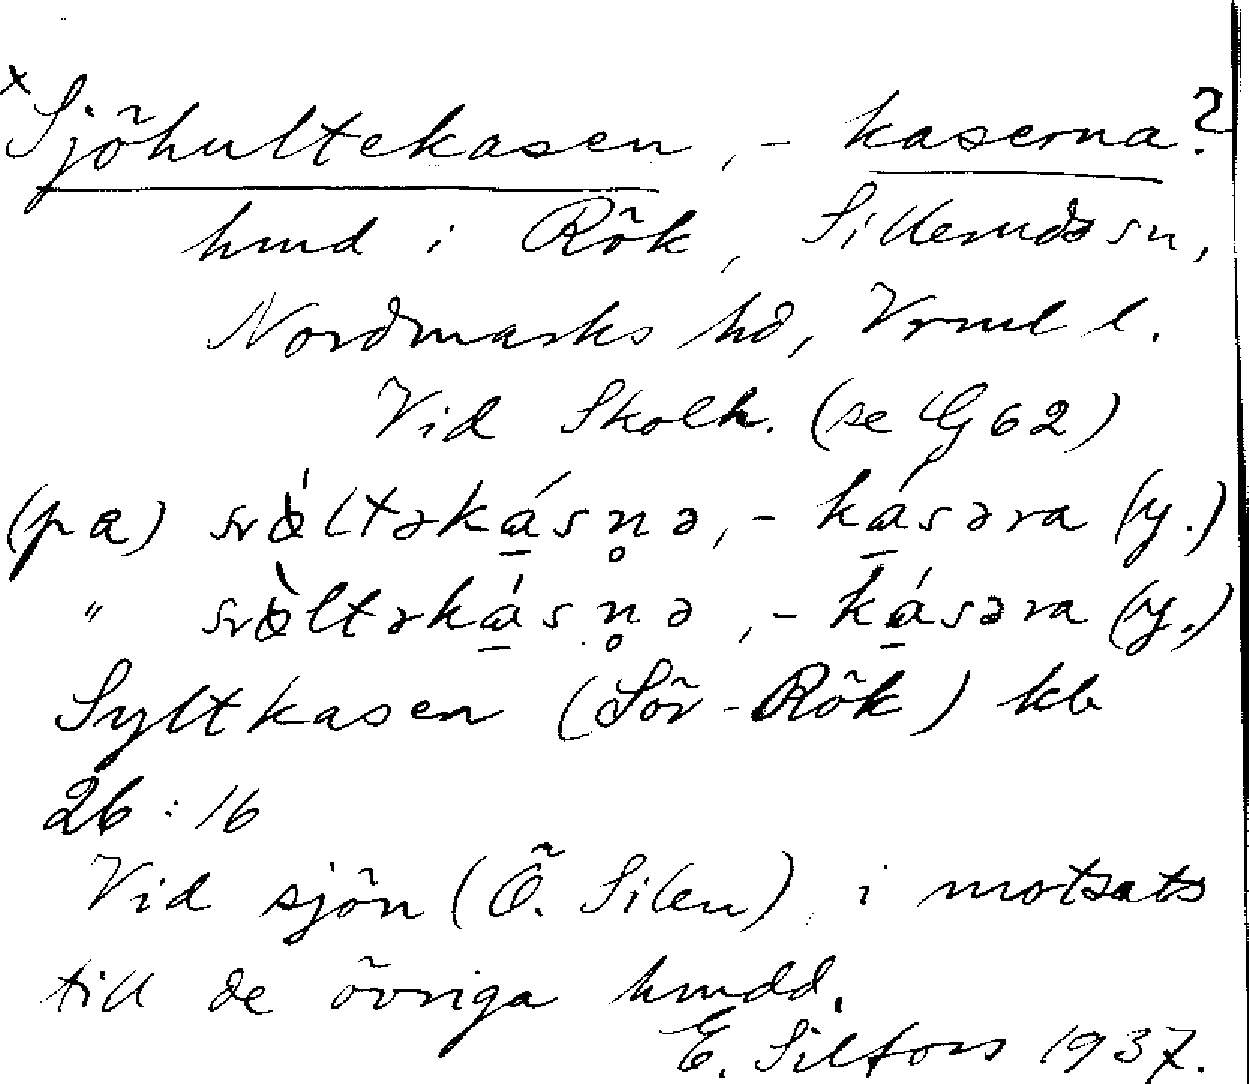 × Sjöhultekasen, -kaserna?
hmd i Rök, Silleruds sn,
Nordmarks hd, Vrml l.
Vid Skolh. (se G62)
(pa) svö̀ltəkásn̥ə, -kásəra (y.)
" svö̀ltəkásn̥ə, -kásəra (y.)
Syltkasen (Sör-Rök) kb
26:16
Vid sjön (Ö. Silen), i motsats
till de övriga hmdd.
E. Silfors 1937.